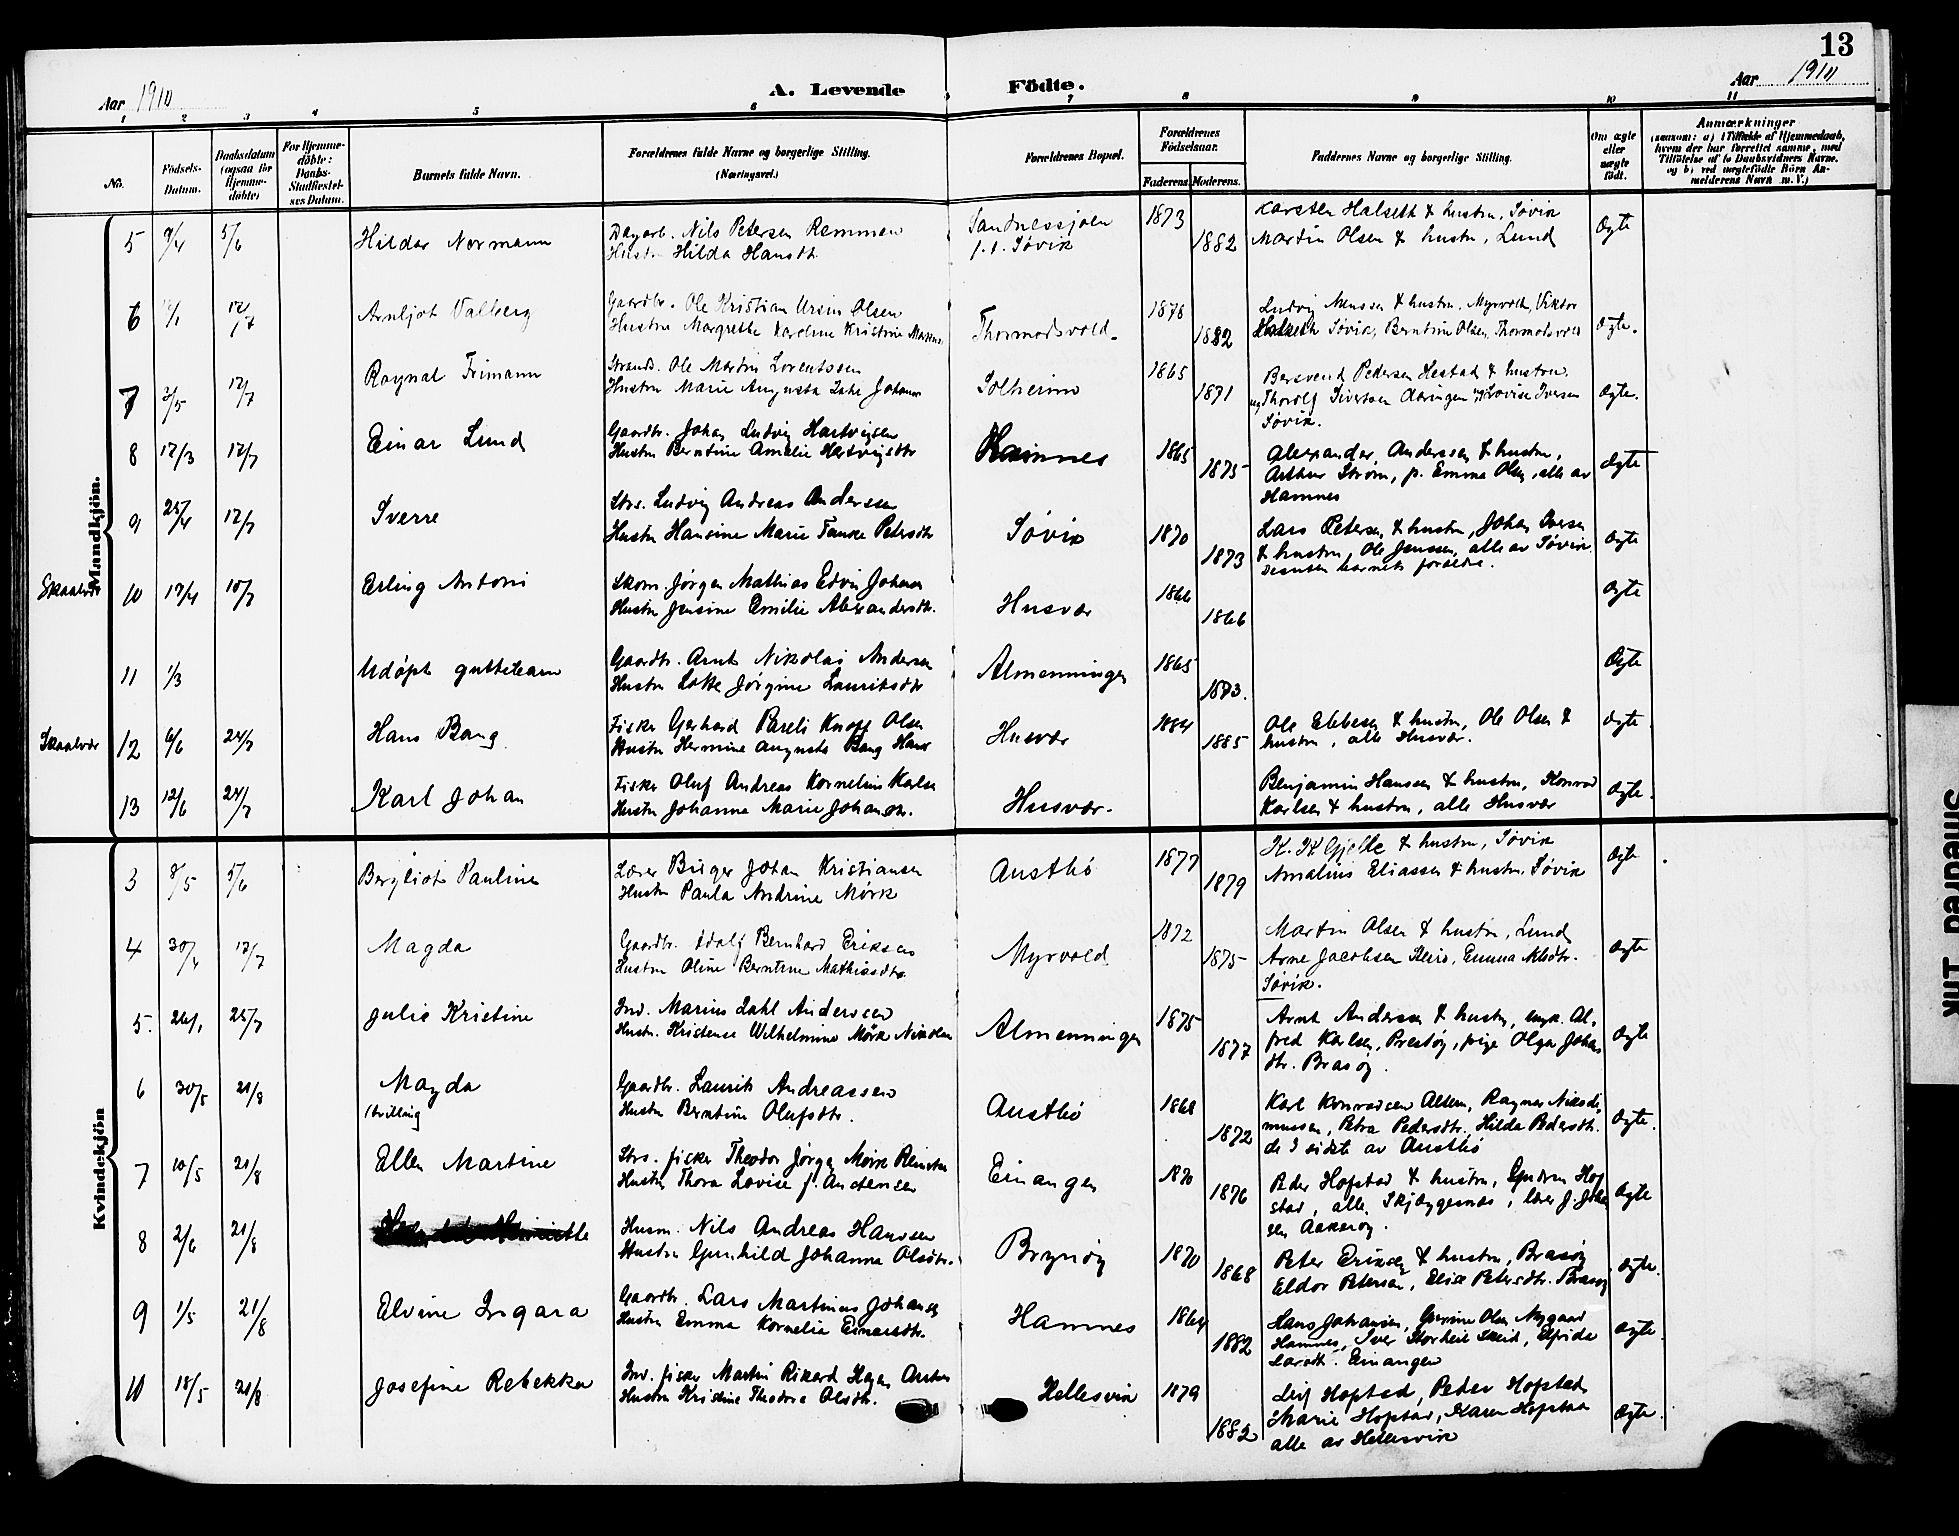 13
Aar 1910
A. Levende Födte.
Aar 1910
1 2 3 4 5 6 7 8 9 10 11
No.
Födsels-Datum.
Daabsdatum (ogsaa for Hjemme-döbte)
For Hjemme-döbte: Daabs-Stadfæstel-ses Datum.
Barnets fulde Navn.
Forældrenes fulde Navne og borgerlige Stilling.
(Næringsvei.)
Forældrenes Bopæl.
Forældrenes Födselsaar.
Faderens. Moderens.
Faddernes Navne og borgerlige Stilling.
Om ægte eller uægte födt.
Anmærkninger
(saasom: a) i Tilfælde af Hjemmedaab, hvem der har forrettet samme, med Tilföielse af to Daabsvidners Navne, og b) ved uægtefödte Börn Anmelderens Navn m. V.)
Mandkjön.
5 9/4 5/6 Hildar Normann
Dagarb. Nils Petersen Remmen
Hustr. Hilda Hansdtr.
Sandnessjøen
f. t. Søvik
1873 1882
Karsten Halseth & hustru, Søvik
Martin Olsen & hustru, Lund
Ægte
6 12/7 Arnljot Valberg
Gaardbr. Ole Kristian Ursin Olsen
Hustru Margrethe Karoline Kristine
Thormodsvold
1876 1882
Ludvig & hustru, Myrvold, Viktor
Halseth Søvik, Berntine Olsen, Thormodsvold
Ægte.
7 3/5 12/7 Ragnal Frimann
Strands. Ole Martin Lorentssen
Hustru Marie Augusta
Solheim
1865 1871
Bersvend Pedersen Hestad & hustru
og Thorolf Sivertsen Lovise Iversen
Søvik.
Ægte.
8 12/3 12/7 Einar Lund
Gaardbr. Johan Ludvig Hartvigsen
Hustru Berntine Amalie Hartvigsdtr
Hamnes
1865 1875
Alexander Anderssen & hustru,
Arthur Strøm, p. Emma Olsen, alle av
Hamnes
Ægte
9 25/4 12/7 Sverre
Strs. Ludvig Andreas Anderssen
Hustru Hansine Marie Petersdtr
Søvik
1870 1873
Lars Petersen & hustru, Johan Iversen
& hustru, Ole Jenssen, alle av Søvik
desuten barnets forældre.
Ægte
Skaalvær 10 17/4 10/7 Erling Antoni
Skom. Jørgen Mathias Edvin Johansen
Hustru Jensine Emilie Alexandersdtr.
Husvær
1866 1866
Ægte
11 1/3 Udøpt guttebarn
Gaardbr. Arnt Nikolai Andersen
Hustru Lotte Jørgine Lauritsdtr
Almenningen
1865 1873.
Ægte
Skaalvær 12 6/6 24/7 Hans Bang
Fisker Gerhard Pareli Knoff Olsen
Hustru Hermine Augusta Bang
Husvær
1884 1885
Ole Ebbesen & hustru, Ole Olsen &
hustru, alle Husvær.
Ægte.
13 12/6 24/7 Karl Johan
Fisker Oluf Andreas Kornelius Karlsen
Hustru Johanna Marie Johansdtr.
Husvær.
Benjamin Hanssen & hustru, Konrad
Karlsen & hustru, alle Husvær
Ægte.
Kvindekjön
3 8/5 5/6 Bergliot Pauline
Lærer Birger Johan Kristiansen
Hustru Paula Andrine Mørk
Austbø
1877 1879
K. K. Gjelle & hustru, Søvik
Amalius Eliassen & hustru, Søvik
Ægte
4 30/4 12/7 Magda
Gaardbr. Adolf Bernhard Eriksen
Hustru Oline Berntine Mathiasdtr.
Myrvold
1872 1875
Martin Olsen & hustru, Lund
Arne Jacobsen Emma
Søvik.
Ægte
5. 25/7 Julie Kristine
Ind. Marius Dahl Anderssen
Hustr. Kristense Wilhelmine Mørk
Almenningen
1875 1877
Arnt Anderssen & hustru, ungk. Al-
fred Karlsen, Prestøy, pige Olga Johans
dtr. Brasøy.
Ægte
6 30/5 21/8 Magda
(tvilling)
Gaardbr. Laurits Andreassen
Hustru Berntine Olufsdtr.
Austbø
1868 1872
Karl Konradsen Alten, Ragnar
Petra Pedersdtr. Hilda Pedersdtr.
de 3 sidste av Austbø
Ægte.
7 10/5 21/8 Ellen Martine
Strs. fisker Theodor Jørgen Mørk
Hustru Thora Lovise f. Andersen
Einangen
1870 1876
Peder Hopstad & hustru, Gudrun Hop
stad, alle Skjæggesnes, lærer J. Johan
sen Aakerøy.
Ægte
8 2/6 21/8
Husm. Nils Andreas Hanssen
Hustru Gunhild Johanna Olsdtr.
Brynøy
1870 1868
Peter Eriksen & hustru, Brasøy
Eldor Petersen, Elise Petersdtr. Brasøy
Ægte.
9 1/5 21/8 Elvine Ingara
Gaardbr. Lars Martinus Johansen
Hustru Emma Kornelia Einarsdtr.
Hamnes
1864 1882
Hans Johansen, Olsen Nygaard
Hamnes, Iver Elfrida
Larsdtr. Einangen
Ægte.
10 18/5 21/8 Josefine Rebekka
Ind. fisker Martin Rikard Hagen
Hustru Kristine Theodora Olsdtr.
Hellesvik
1879 1882
Leif Hopstad, Peder Hopstad
Marie Hopstad, Karen Hopstad
alle av Hellesvik
Ægte.
Smedred Trik